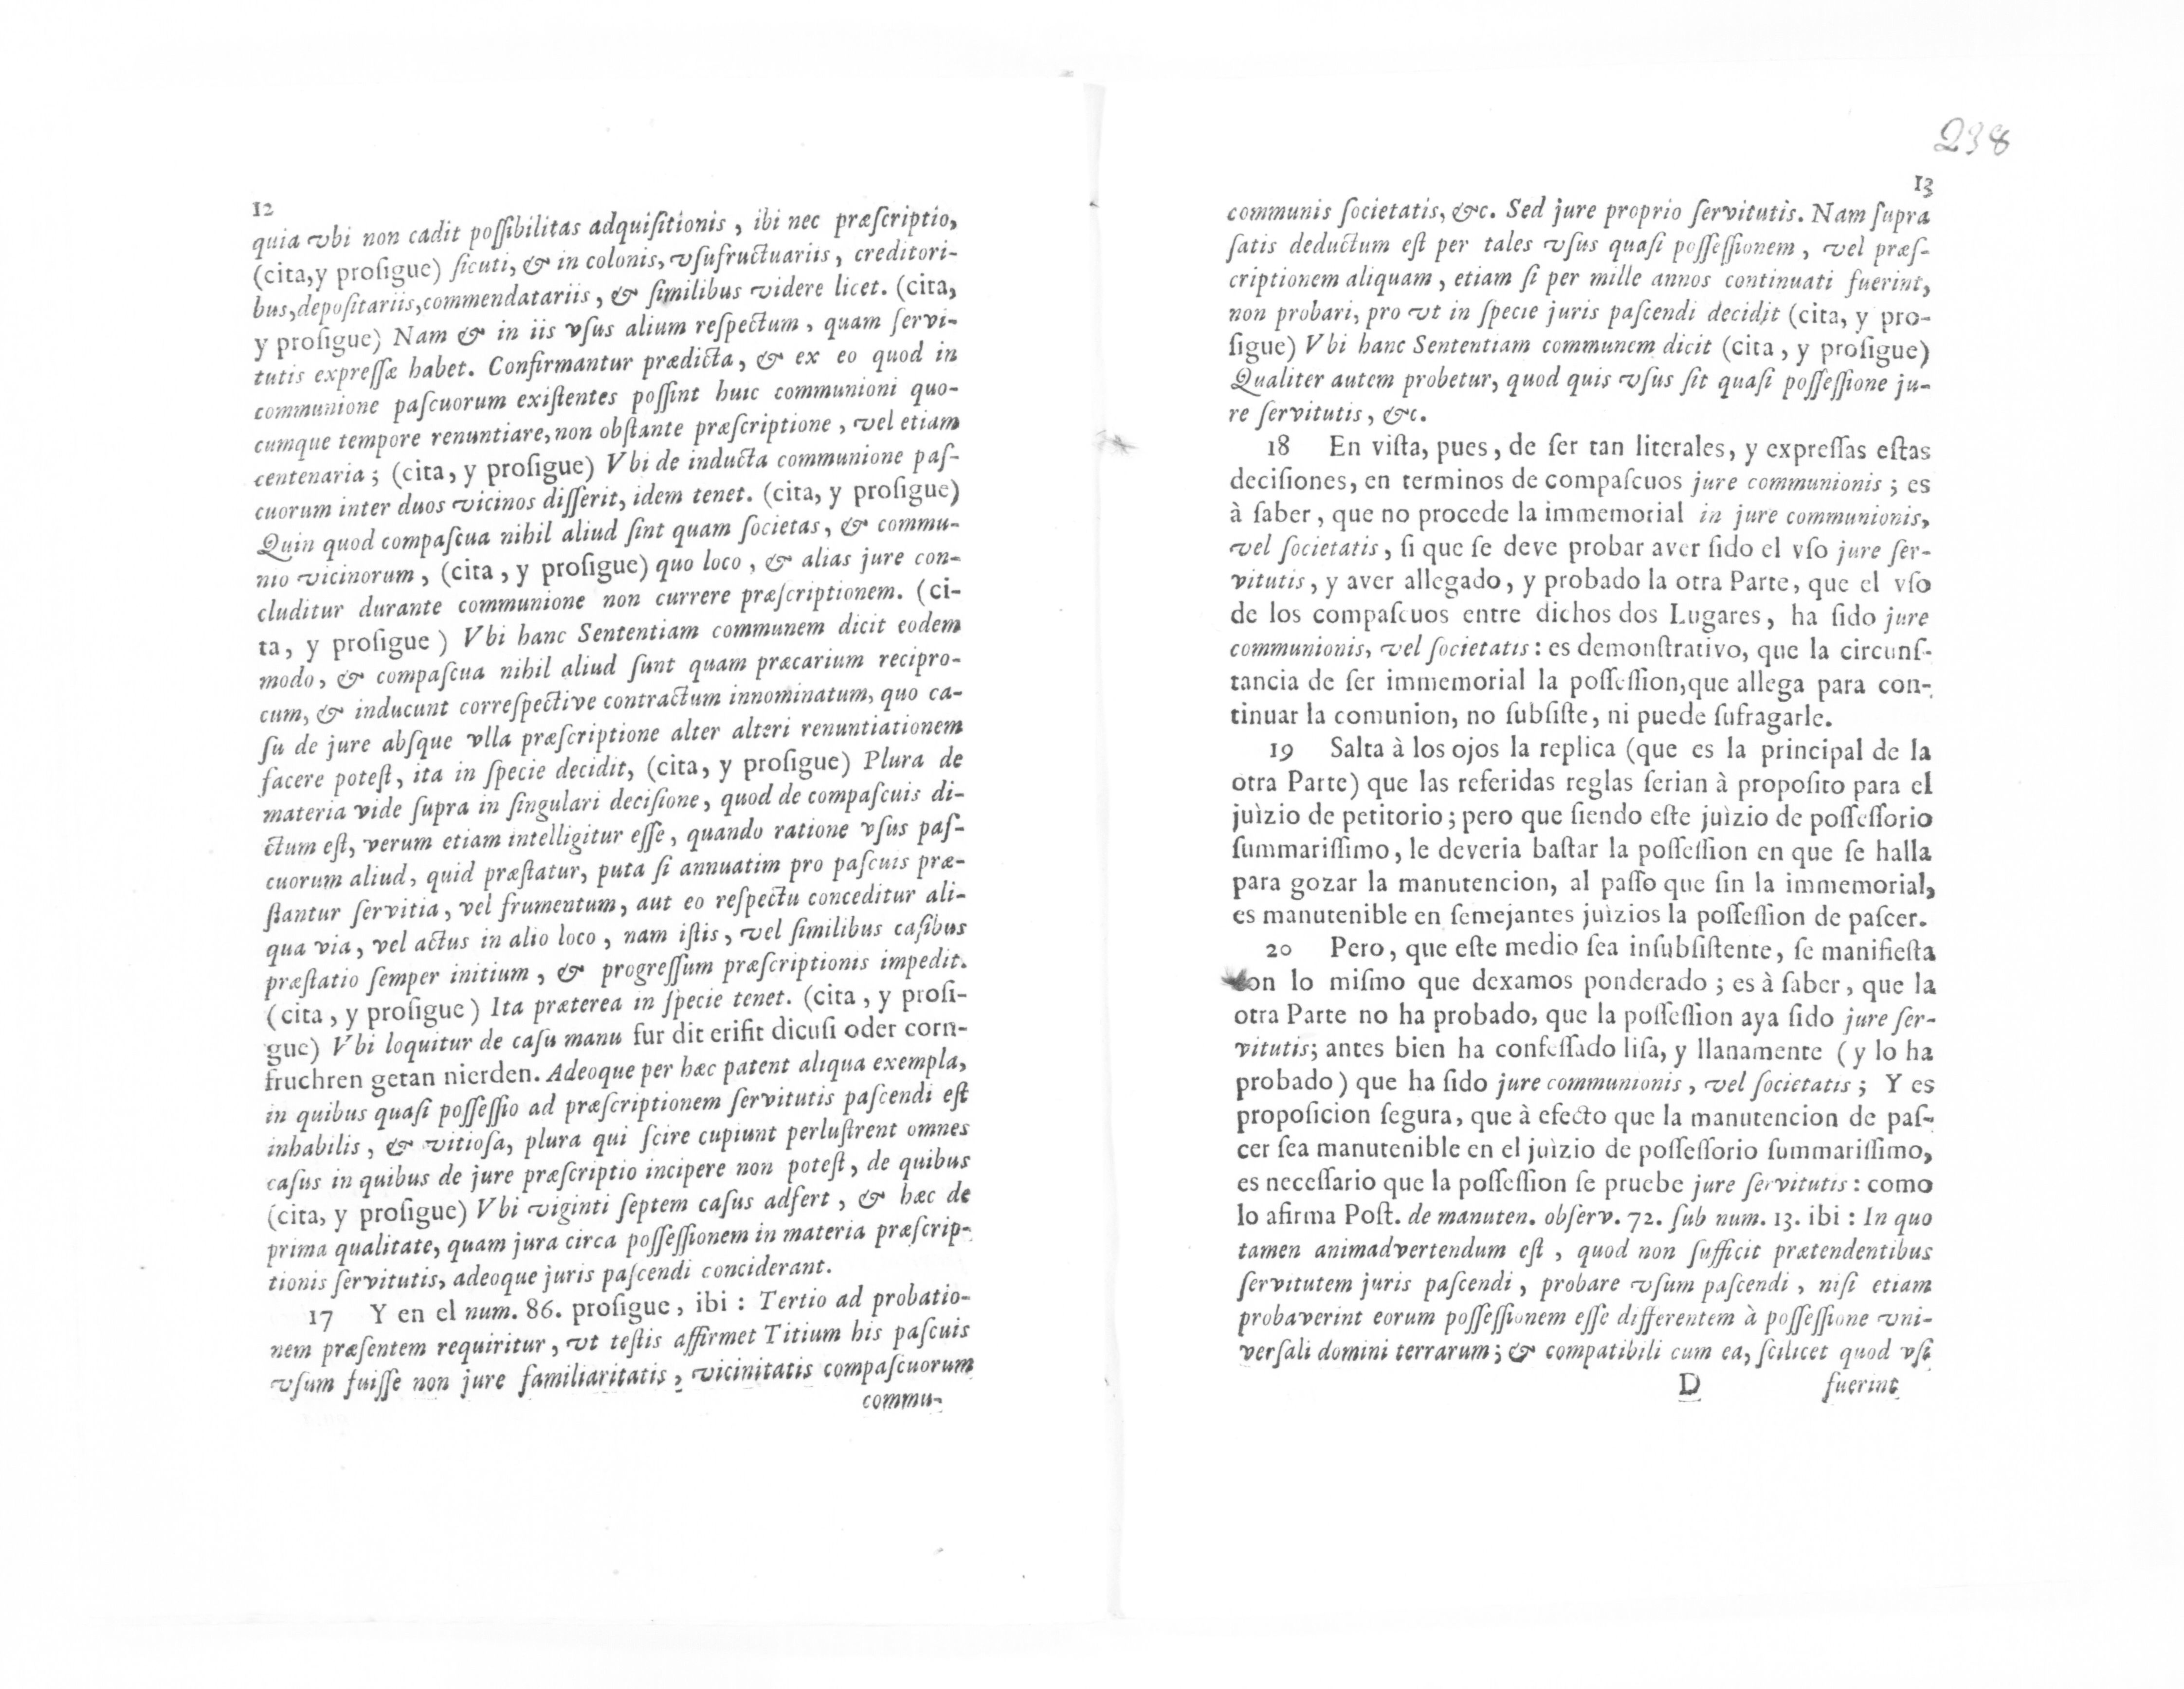 12
quia vbi non cadit poſſibilitas adquiſitionis, ibi nec præſcriptio,
(cita, y proſigue) ſicuti, & in colonis, vſufructuariis, creditori-
bus, depoſitariis, commendatariis, & ſimilibus videre licet. (cita,
y proſigue) Nam & in iis vſus alium reſpectum, quam ſervi-
tutis expreſſæ habet. Confirmantur prædicta, & ex eo quod in
communione paſcuorum exiſtentes poſſint huic communioni quo-
cumque tempore renuntiare, non obſtante præſcriptione, vel etiam
centenaria; (cita, y proſigue) Vbi de inducta communione paſ-
cuorum inter duos vicinos diſſerit, idem tenet. (cita, y proſigue)
Quin quod compaſcua nihil aliud ſint quam ſocietas, & commu-
nio vicinorum, (cita, y proſigue) quo loco, & alias jure con-
cluditur durante communione non currere præſcriptionem. (ci-
ta, y proſigue) Vbi hanc Sententiam communem dicit eodem
modo, & compaſcua nihil aliud ſunt quam præcarium recipro-
cum, & inducunt correſpective contractum innominatum, quo ca-
ſu de jure abſque vlla præſcriptione alter alteri renuntiationem
facere poteſt, ita in ſpecie decidit, (cita, y proſigue) Plura de
materia vide ſupra in ſingulari deciſione, quod de compaſcuis di-
ctum eſt, verum etiam intelligitur eſſe, quando ratione vſus paſ-
cuorum aliud, quid præſtatur, puta ſi annuatim pro paſcuis præ-
ſtantur ſervitia, vel frumentum, aut eo reſpectu conceditur ali-
qua via, vel actus in alio loco, nam iſtis, vel ſimilibus caſibus
præſtatio ſemper initium, & progreſſum præſcriptionis impedit.
(cita, y proſigue) Ita præterea in ſpecie tenet. (cita, y proſi-
gue) Vbi loquitur de caſu manu fur dit erifit dicuſi oder corn-
fruchren getan nierden. Adeoque per hæc patent aliqua exempla,
in quibus quaſi poſſeſſio ad præſcriptionem ſervitutis paſcendi eſt
inhabilis, & vitioſa, plura qui ſcire cupiunt perluſtrent omnes
caſus in quibus de jure præſcriptio incipere non poteſt, de quibus
(cita, y proſigue) Vbi viginti ſeptem caſus adfert, & hæc de
prima qualitate, quam jura circa poſſeſſionem in materia præſcrip-
tionis ſervitutis, adeoque juris paſcendi conciderant.
17 Y en el num. 86. proſigue, ibi: Tertio ad probatio-
nem præſentem requiritur, vt teſtis affirmet Titium his paſcuis
vſum fuiſſe non jure familiaritatis, vicinitatis compaſcuorum
commu-
238
13
communis ſocietatis, &c. Sed jure proprio ſervitutis. Nam ſupra
ſatis deductum eſt per tales vſus quaſi poſſeſſionem, vel præſ-
criptionem aliquam, etiam ſi per mille annos continuati fuerint,
non probari, pro vt in ſpecie juris paſcendi decidit (cita, y pro-
ſigue) Vbi hanc Sententiam communem dicit (cita, y proſigue)
Qualiter autem probetur, quod quis vſus ſit quaſi poſſeſſione ju-
re ſervitutis, &c.
18 En viſta, pues, de ſer tan literales, y expreſſas eſtas
deciſiones, en terminos de compaſcuos jure communionis; es
à ſaber, que no procede la immemorial in jure communionis,
vel ſocietatis, ſi que ſe deve probar aver ſido el vſo jure ſer-
vitutis, y aver allegado, y probado la otra Parte, que el vſo
de los compaſcuos entre dichos dos Lugares, ha ſido jure
communionis, vel ſocietatis: es demonſtrativo, que la circunſ-
tancia de ſer immemorial la poſſeſſion, que allega para con-
tinuar la comunion, no ſubſiſte, ni puede ſufragarle.
19 Salta à los ojos la replica (que es la principal de la
otra Parte) que las referidas reglas ſerian à propoſito para el
juìzio de petitorio; pero que ſiendo eſte juìzio de poſſeſſorio
ſummariſſimo, le deveria baſtar la poſſeſſion en que ſe halla
para gozar la manutencion, al paſſo que ſin la immemorial,
es manutenible en ſemejantes juìzios la poſſeſſion de paſcer.
20 Pero, que eſte medio ſea inſubſiſtente, ſe manifieſta
con lo miſmo que dexamos ponderado; es à ſaber, que la
otra Parte no ha probado, que la poſſeſſion aya ſido jure ſer-
vitutis; antes bien ha confeſſado liſa, y llanamente (y lo ha
probado) que ha ſido jure communionis, vel ſocietatis; Y es
propoſicion ſegura, que à efecto que la manutencion de paſ-
cer ſea manutenible en el juìzio de poſſeſſorio ſummariſſimo,
es neceſſario que la poſſeſſion ſe pruebe jure ſervitutis: como
lo afirma Poſt. de manuten. obſerv. 72. ſub num. 13. ibi: In quo
tamen animadvertendum eſt, quod non ſufficit prætendentibus
ſervitutem juris paſcendi, probare vſum paſcendi, niſi etiam
probaverint eorum poſſeſſionem eſſe differentem à poſſeſſione vni-
verſali domini terrarum; & compatibili cum ea, ſcilicet quod vſi
D fuerint